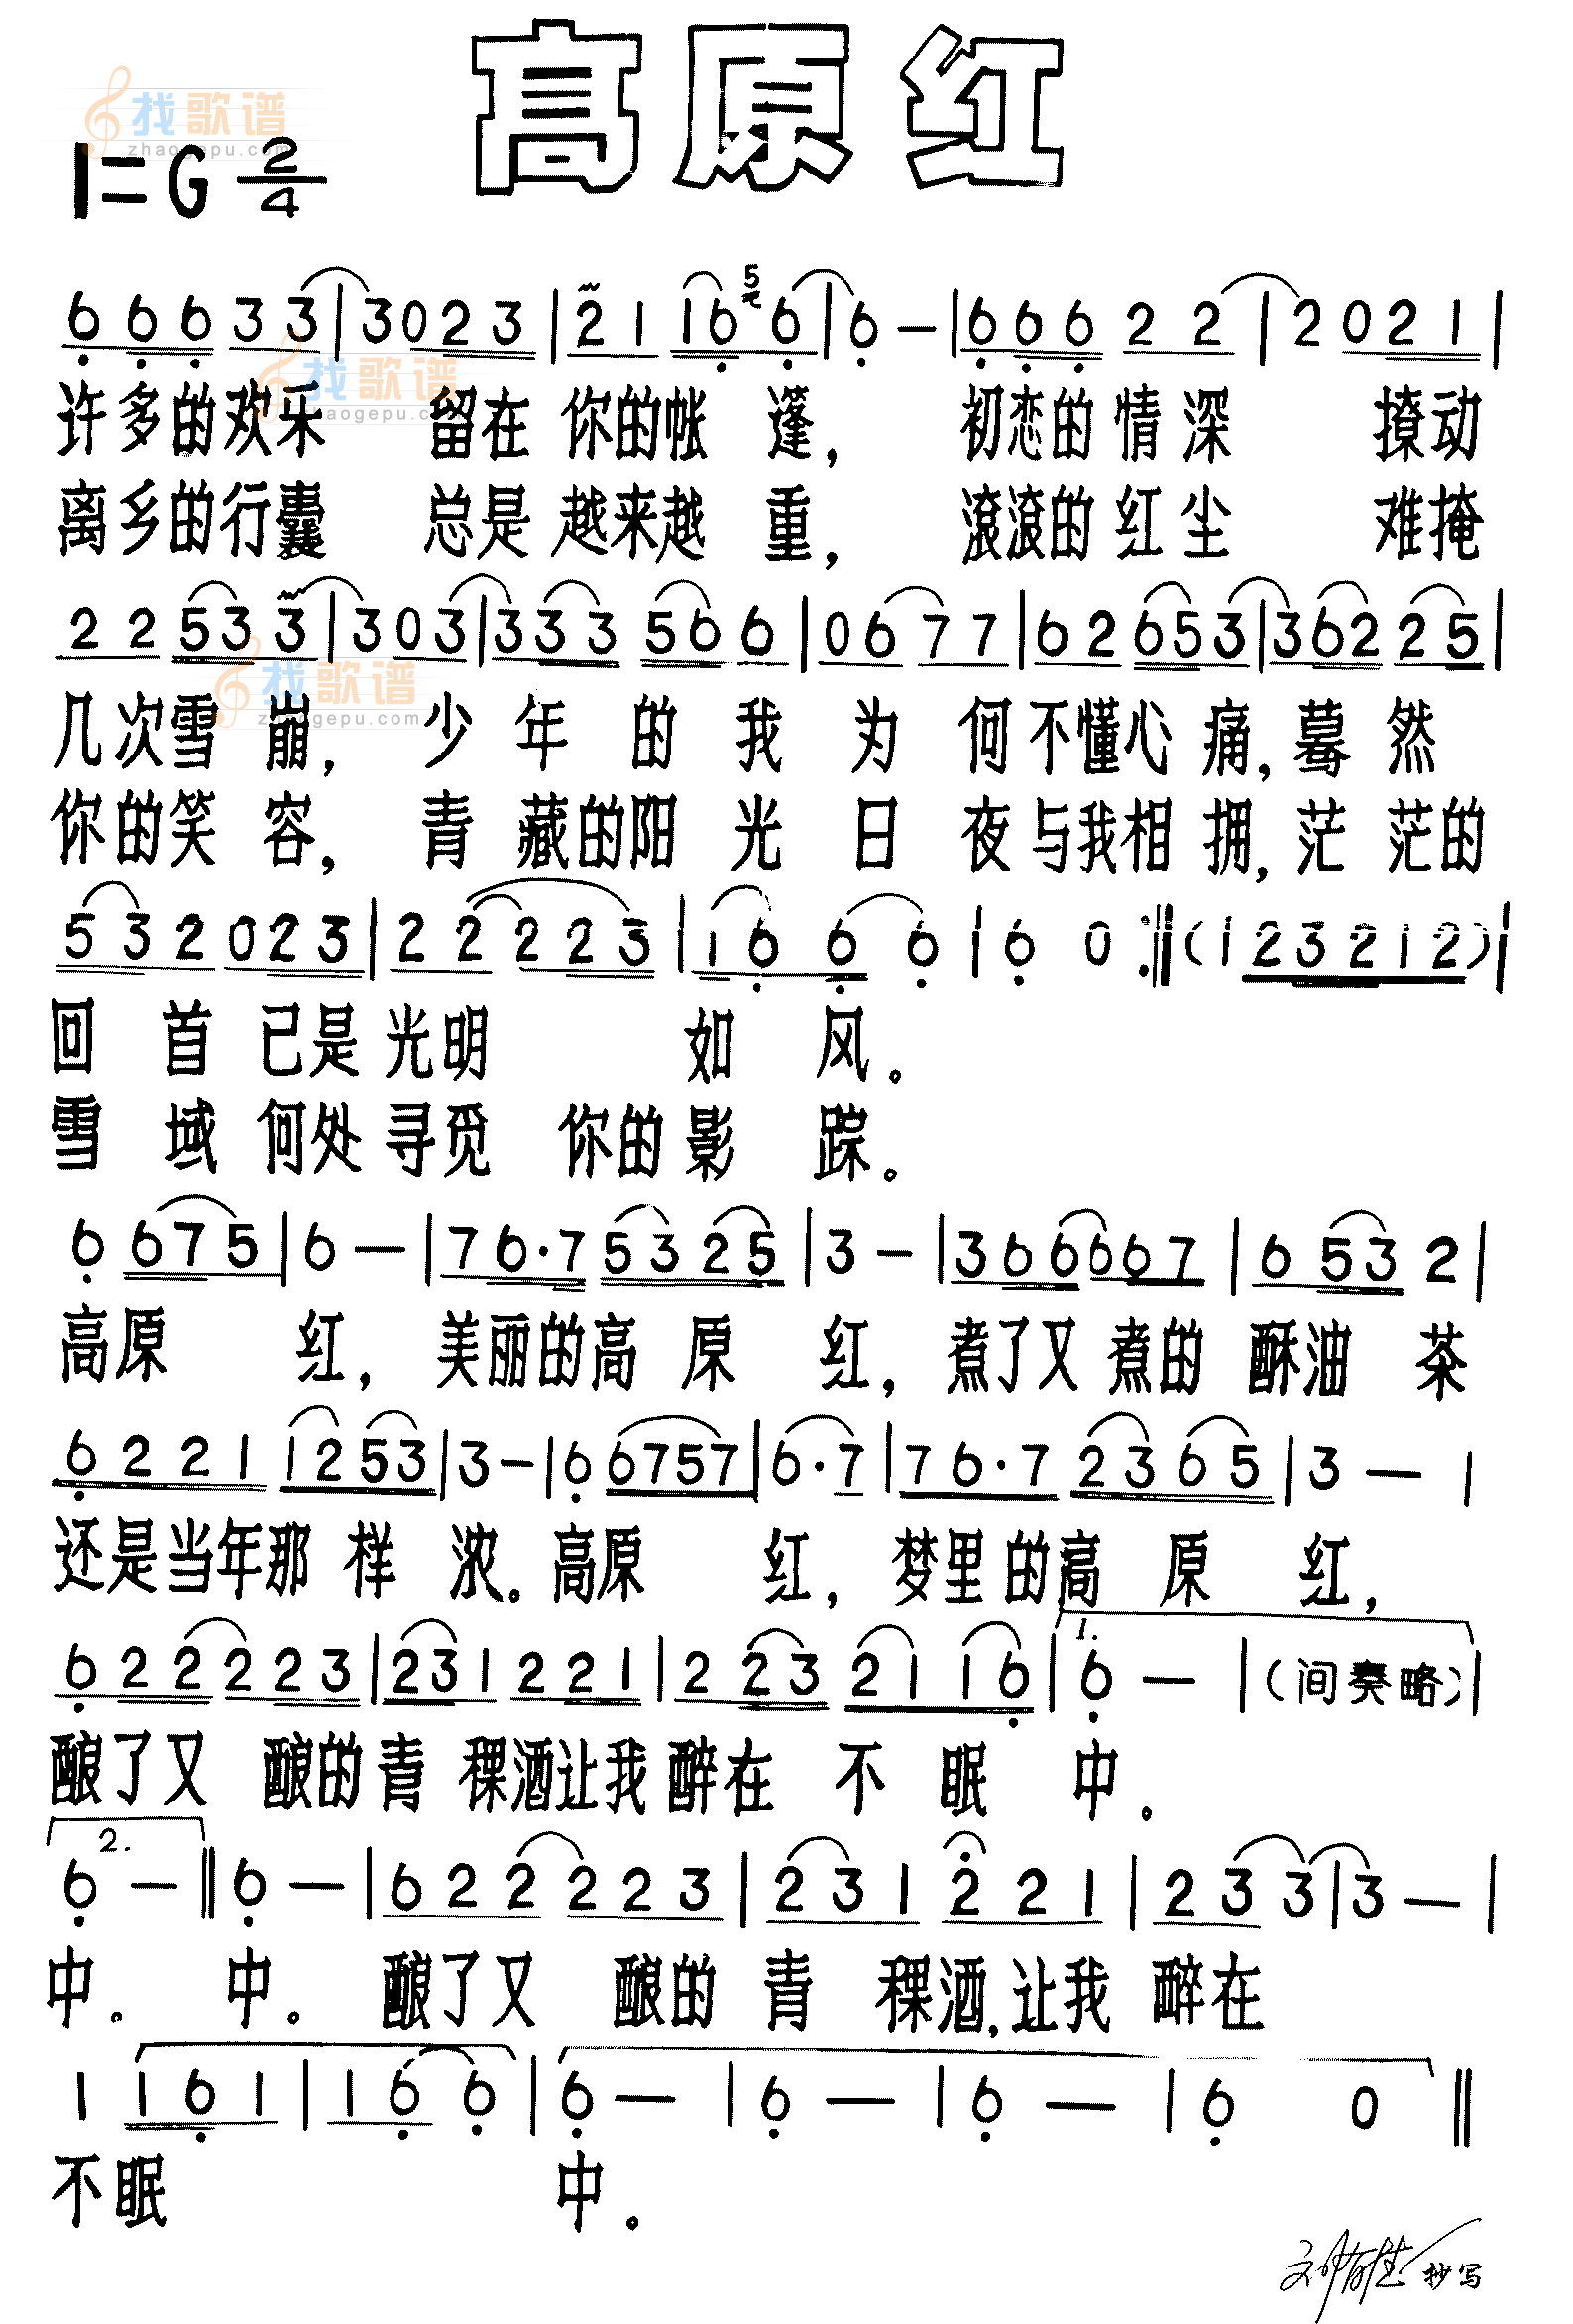 高原红
找歌谱
zhaogepu.com
1=G 2/4
6 6 6 3 3 | 3 0 2 3 | 2 1 1 6 5 6 | 6 — | 6 6 6 2 2 | 2 0 2 1 |
找歌谱
aogepu.c
许多的欢乐 留在 你的帐 篷, 初恋的情深 撩动
离乡的行囊 总是 越来越 重, 滚滚的红尘 难掩
2 2 5 3 3 | 3 0 3 | 3 3 3 5 6 6 | 0 6 7 7 | 6 2 6 5 3 | 3 6 2 2 5 |
找歌谱
zhaogepu.com
几次雪 崩, 少 年 的 我 为 何不懂心 痛, 蓦 然
你的笑 容, 青 藏的阳 光 日 夜与我相 拥, 茫 茫的
5 3 2 0 2 3 | 2 2 2 2 3 | 1 6 6 6 | 6 0 :‖ ( 1 2 3 2 1 2 ) |
回 首 已是光明 如 风。
雪 域 何处寻觅 你的影 踪。
6 6 7 5 | 6 — | 7 6 · 7 5 3 2 5 | 3 — | 3 6 6 6 6 7 | 6 5 3 2 |
高原 红, 美丽的高 原 红, 煮了又 煮的 酥油 茶
6 2 2 1 1 2 5 3 | 3 — | 6 6 7 5 7 | 6 · 7 | 7 6 · 7 2 3 6 5 | 3 — |
还是当年那 样 浓。高原 红, 梦里的高 原 红,
1.
6 2 2 2 2 3 | 2 3 1 2 2 1 | 2 2 3 2 1 1 6 | 6 — | (间奏略) |
酿了又 酿的青 稞酒让我醉在 不 眠 中。
2.
6 — ‖ 6 — | 6 2 2 2 2 3 | 2 3 1 2 2 1 | 2 3 3 | 3 — |
中。 中。 酿了又 酿的 青 稞酒,让我 醉在
1 1 6 1 | 1 6 6 | 6 — | 6 — | 6 — | 6 0 ‖
不眠 中。
抄写